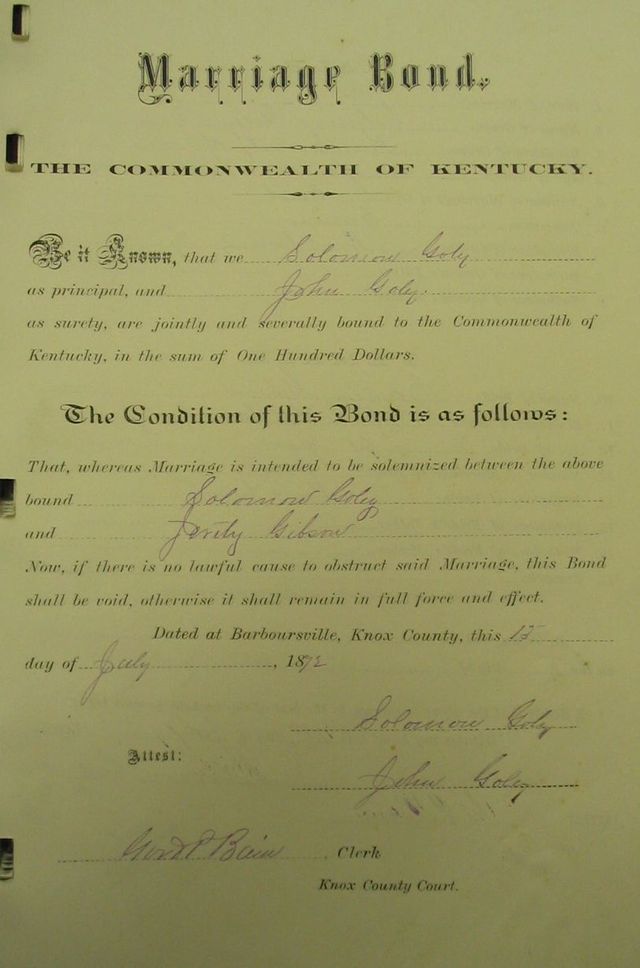 Marriage Bond.
THE COMMONWEALTH OF KENTUCKY.
Be it Known, that we Solomon Goly
as principal, and John Goly.
as surety, are jointly and severally bound to the Commonwealth of
Kentucky, in the sum of One Hundred Dollars.
The Condition of this Bond is as follows:
That, whereas Marriage is intended to be solemnized between the above
bound Solomon Goly
and Gibson
Now, if there is no lawful cause to obstruct said Marriage, this Bond
shall be void, otherwise it shall remain in full force and effect.
Dated at Barboursville, Knox County, this 15
day of July, 1892
Solomon Goly
Attest:
John Goly
Bain Clerk
Knox County Court.